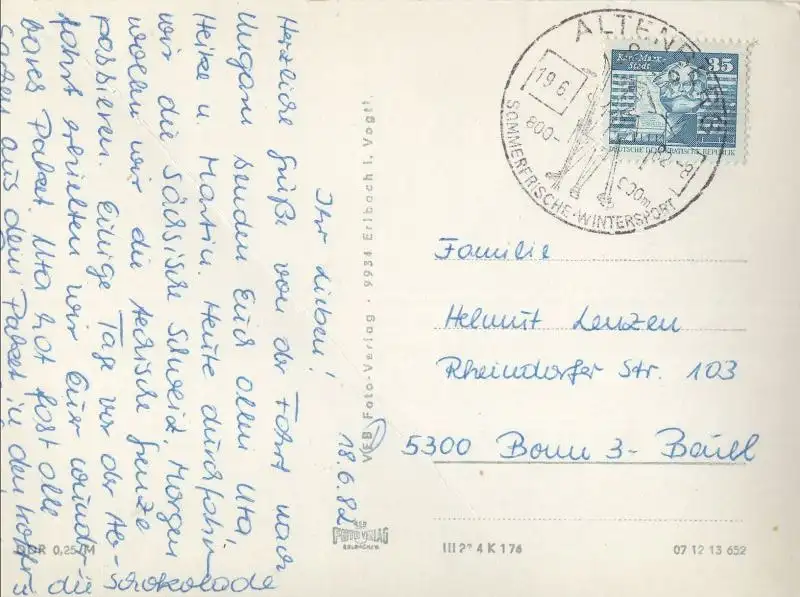 18.6.82
Ihr Lieben!
Herzliche Grüße von der Fahrt nach
Ungarn senden Euch allen Uta
Heike u. Martin. Heute durchfahren
wir die Sächsische Schweiz. Morgen
wollen wir die tschechische Grenze
passieren. Einige Tage vor der Ab-
fahrt erhielten wir Euer wunder-
bares Paket. Uta hat fast alle
Sachen aus dem Paket in den Koffer
u. die Schokolade
VEB Foto-Verlag · 9931 Erlbach i. Vogtl.
DDR 0,25/M
FOTO VERLAG
ERLBACH
ALTENBERG
19.6.82-8
800-900m
SOMMERFRISCHE·WINTERSPORT
Karl-Marx-
Stadt
35
DEUTSCHE DEMOKRATISCHE REPUBLIK
Familie
Helmut Lenzen
Rheindorfer Str. 103
5300 Bonn 3- Beuel
III 4 K 176
07 12 13 652